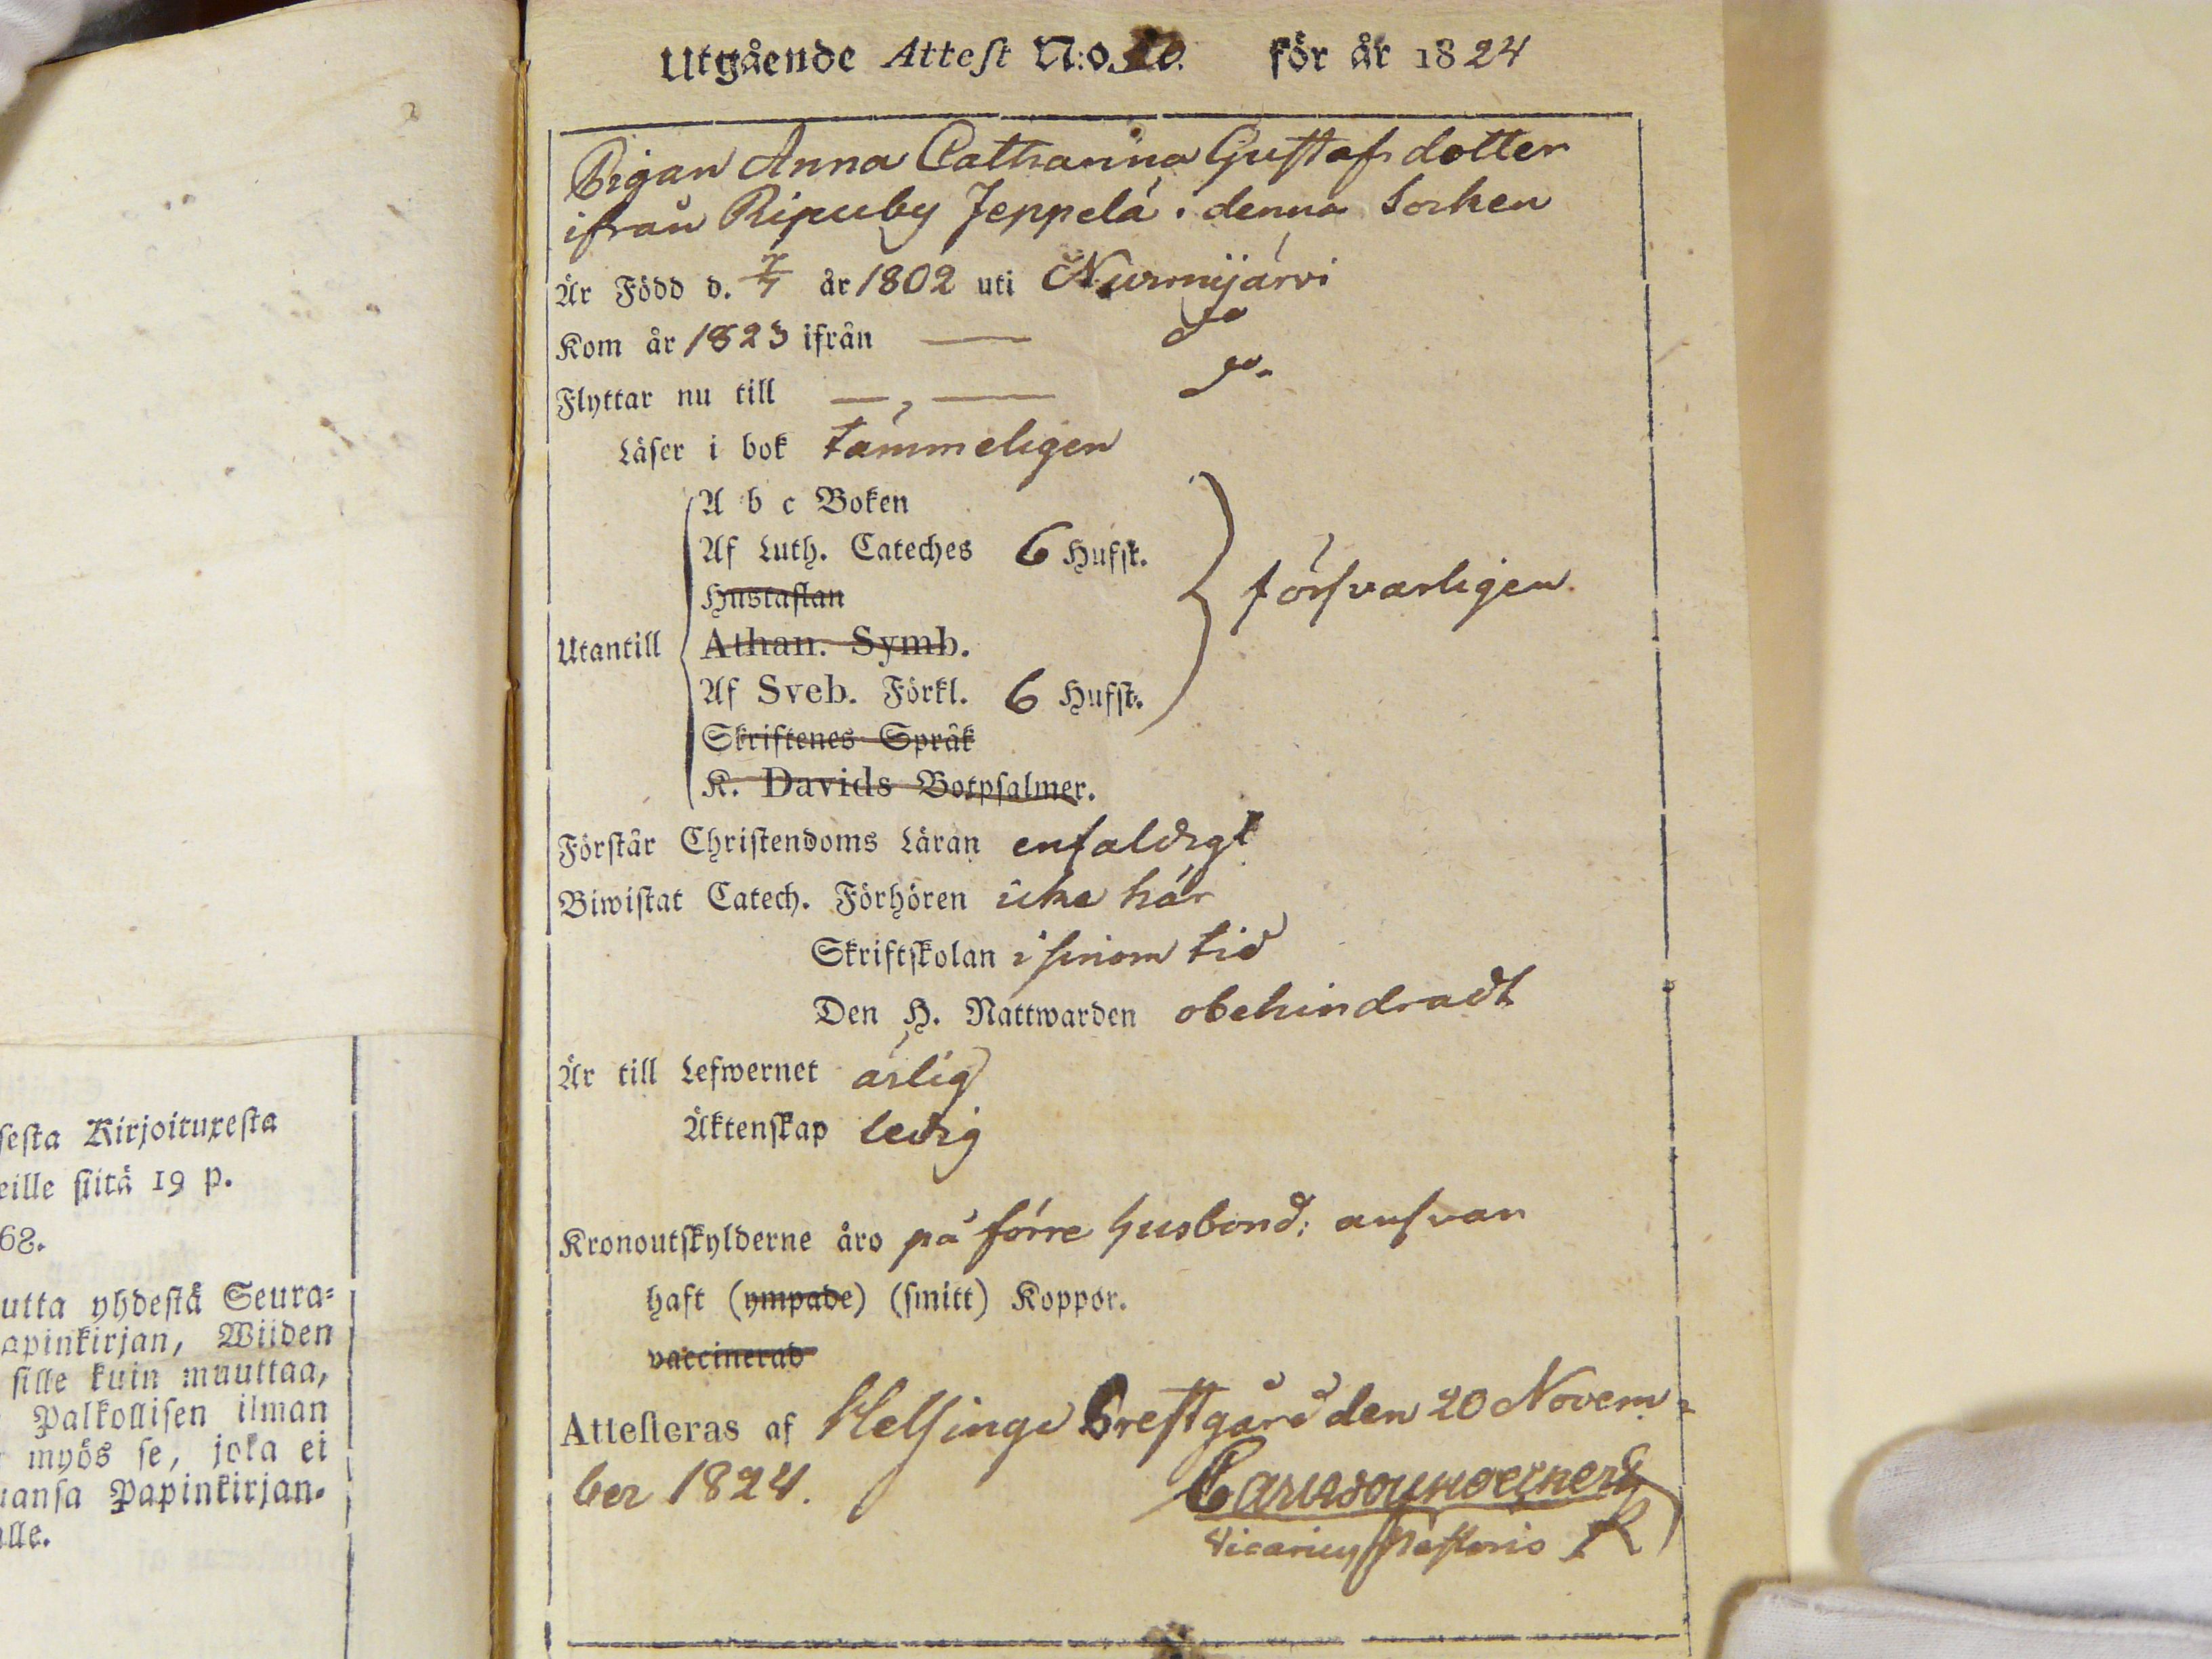 Utgående Attest N:o för år 1824
Pigan Anna Catharina Gustafsdotter
ifrån Ripuby Jeppelä i denna Socken
Är Född d. 7/7 år 1802 uti Nurmijärvi
Kom år 1823 ifrån — do
Flyttar nu till —,— do.
Läser i bok tämmeligen
A b c Boken
Af Luth. Cateches 6 Hufst.
Hustaflan
försvarligen
Utantill
Athan. Symb.
Af Sveb. Förkl. 6 Hufst.
Skriftenes Språk
K. Davids Botpsalmer.
Förstår Christendoms Läran enfaldigt
Biwistat Catech. Förhören icke här
Skriftskolan i sinom tid
Den H. Nattwarden obehindradt
Är till Lefwernet ärlig
Äktenskap ledig
Kronoutskylderne äro på förre husbond: ansvar
haft (ympade) (smitt) Koppor.
vaccinerad
Attesteras af Helsinge Prestgård den 20 Novem-
ber 1824.
Vicarius Pastoris
sesta Kirjoituxesta
eille siitä 19 p.
68.
utta yhdestä Seura-
apinkirjan, Wiiden
sille kuin muuttaa,
Palkollisen ilman
myös se, joka ei
uansa Papinkirjan-
alle.